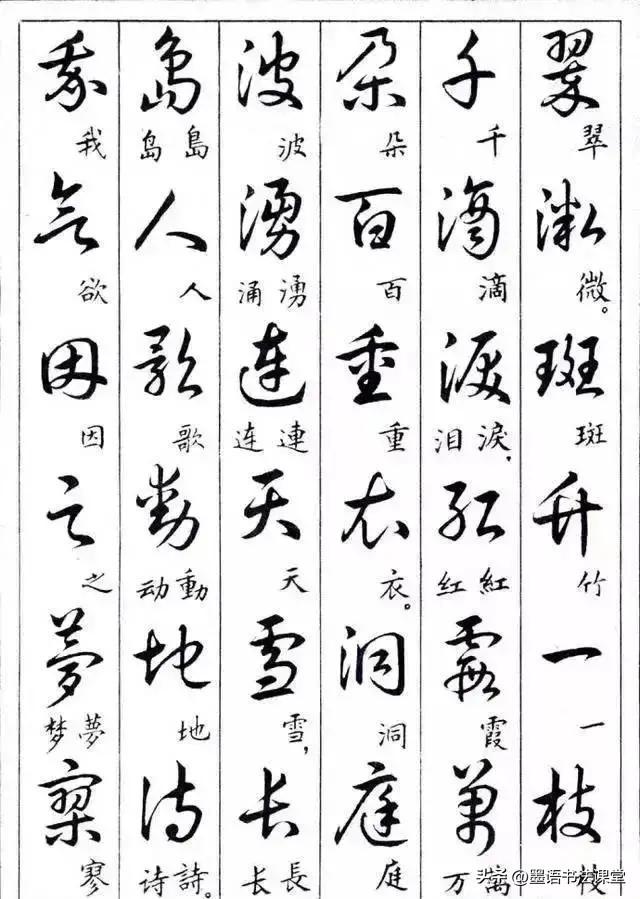 翠微斑竹一枝
翠微。斑竹一枝
千滴泪红霞万
千滴淚，紅霞萬
泪红万
朵百重衣洞庭
朵百重衣。洞庭
波湧连天雪长
波湧連天雪，長
涌连长
岛人歌動地诗
島人歌動地詩。
岛动诗
我欲因之夢寥
我欲因之夢寥
梦
头条@墨语书法课堂